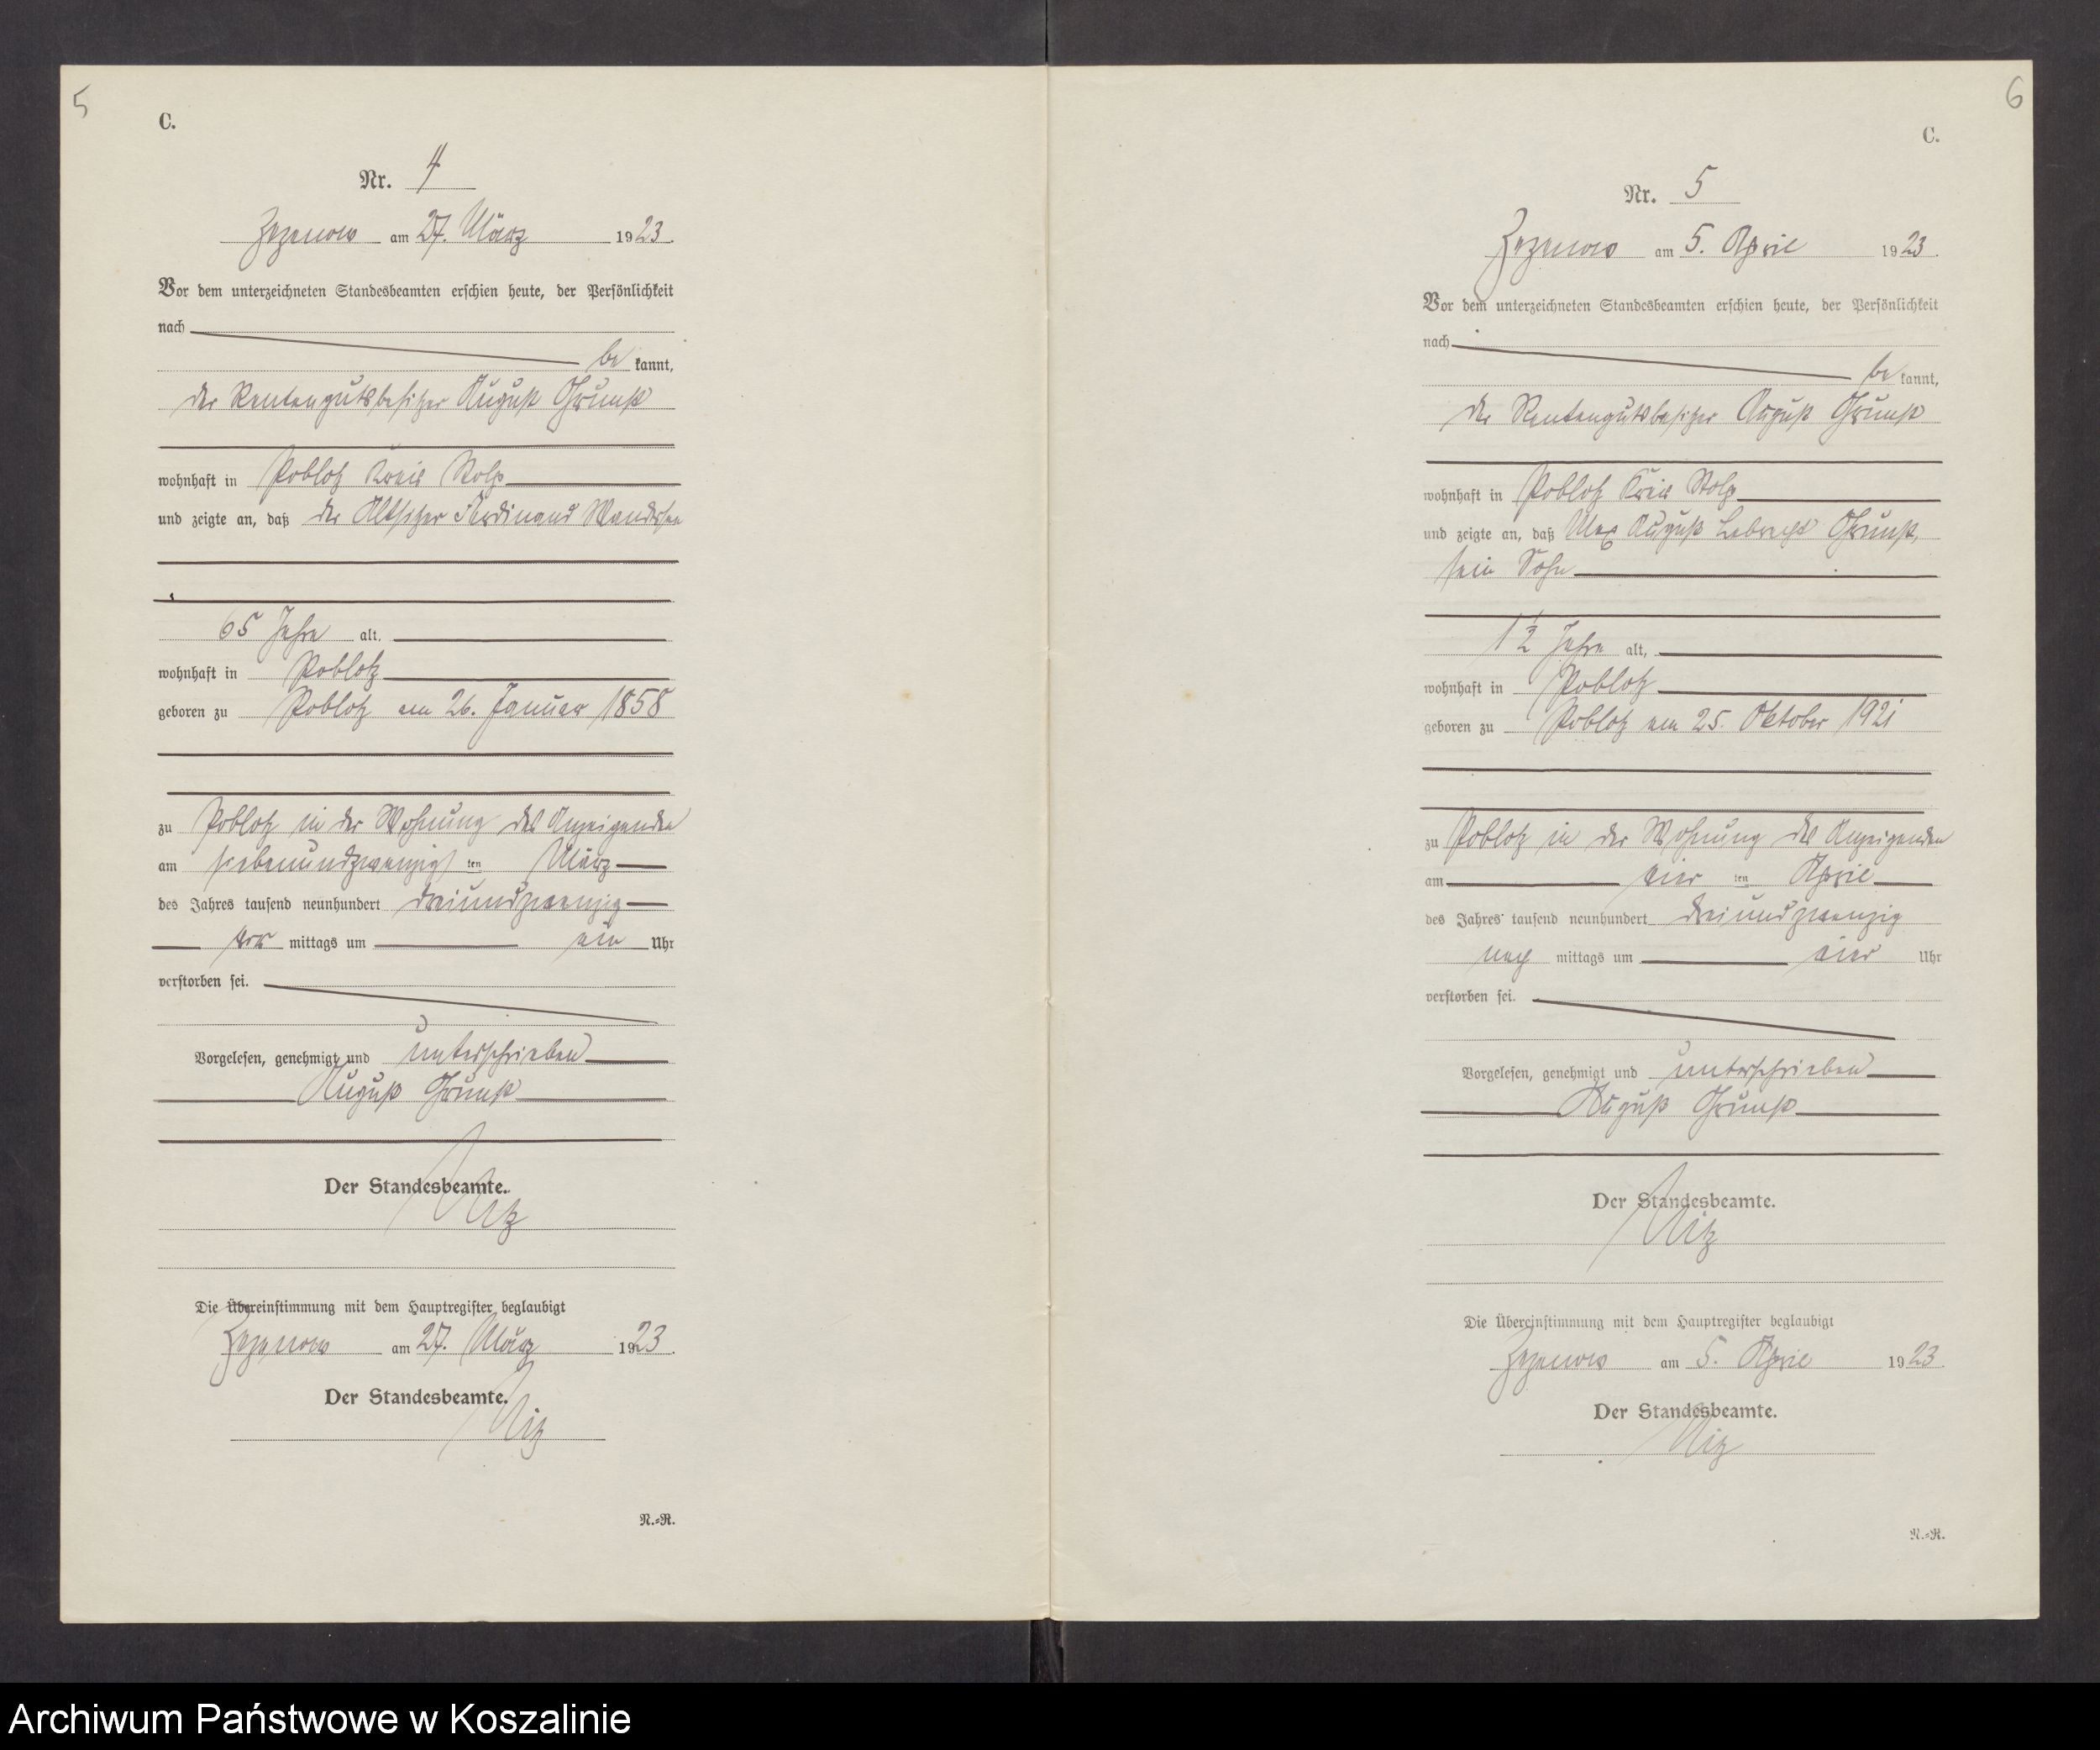 5
C.
Nr. 4
Zezenow am 27. März 1923.
Vor dem unterzeichneten Standesbeamten erschien heute, der Persönlichkeit
nach
be kannt,
der Rentengutsbesitzer August Grunst
wohnhaft in Poblotz Kreis Stolp
und zeigte an, daß der Altsitzer Ferdinand
65 Jahre alt,
wohnhaft in Poblotz
geboren zu Poblotz am 26. Januar 1858
zu Poblotz in der Wohnung des Anzeigenden
am siebenundzwanzigsten März
des Jahres tausend neunhundert dreiundzwanzig
vor mittags um ein Uhr
verstorben sei.
Vorgelesen, genehmigt und unterschrieben
August Grunst
Der Standesbeamte.
Die Übereinstimmung mit dem Hauptregister beglaubigt
Zezenow am 27. März 1923.
Der Standesbeamte.
N.=R.
6
C.
Nr. 5
Zezenow am 5. April 1923.
Vor dem unterzeichneten Standesbeamten erschien heute, der Persönlichkeit
nach
be kannt,
der Rentengutsbesitzer August Grunst
wohnhaft in Poblotz Kreis Stolp
und zeigte an, daß Max August Lebrecht Grunst,
sein Sohn
1 1/2 Jahre alt,
wohnhaft in Poblotz
geboren zu Poblotz am 25. Oktober 1921
zu Poblotz in der Wohnung des Anzeigenden
am vier ten April
des Jahres tausend neunhundert dreiundzwanzig
nach mittags um vier Uhr
verstorben sei.
Vorgelesen, genehmigt und unterschrieben
August Grunst
Der Standesbeamte.
Die Übereinstimmung mit dem Hauptregister beglaubigt
Zezenow am 5. April 1923.
Der Standesbeamte.
N.=R.
Archiwum Państwowe w Koszalinie